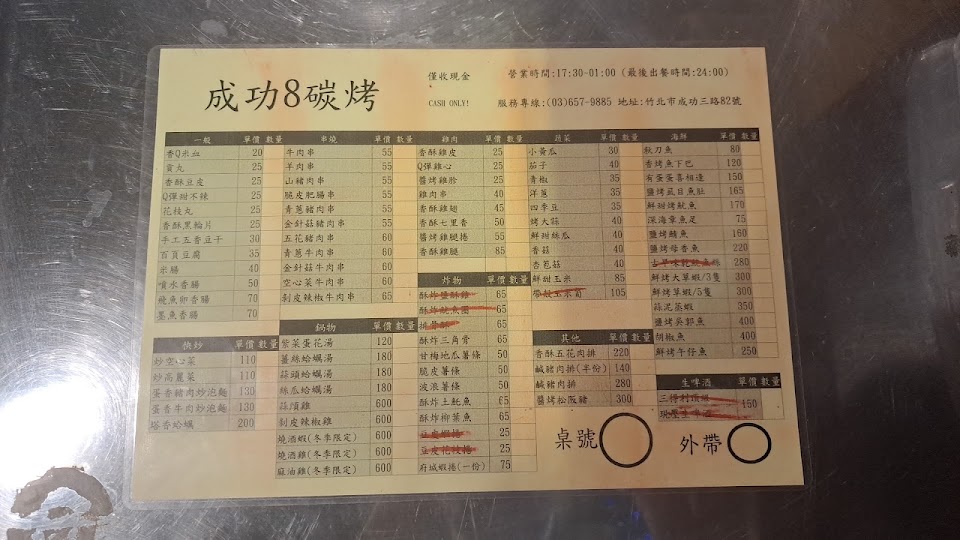 成功8碳烤
僅收現金
CASH ONLY!
營業時間:17:30-01:00 (最後出餐時間:24:00)
服務專線:(03)657-9885 地址:竹北市成功三路82號
一般 單價 數量
香Q米血 20
貢丸 25
香酥豆皮 25
Q彈甜不辣 25
花枝丸 25
香酥黑輪片 25
手工五香豆干 30
百頁豆腐 35
米腸 40
噴水香腸 50
飛魚卵香腸 70
墨魚香腸 70
快炒 單價 數量
炒空心菜 110
炒高麗菜 110
蛋香豬肉炒泡麵 130
蛋香牛肉炒泡麵 130
塔香蛤蠣 200
串燒 單價 數量
牛肉串 55
羊肉串 55
山豬肉串 55
脆皮肥腸串 55
青蔥豬肉串 55
金針菇豬肉串 55
五花豬肉串 60
青蔥牛肉串 60
金針菇牛肉串 60
空心菜牛肉串 60
剝皮辣椒牛肉串 65
鍋物 單價 數量
紫菜蛋花湯 120
薑絲蛤蠣湯 180
蒜頭蛤蠣湯 180
絲瓜蛤蠣湯 180
蒜頭雞 600
剝皮辣椒雞 600
燒酒蝦(冬季限定) 600
燒酒雞(冬季限定) 600
麻油雞(冬季限定) 600
雞肉 單價 數量
香酥雞皮 25
Q彈雞心 25
醬烤雞胗 25
雞肉串 40
香酥雞翅 45
香酥七里香 50
醬烤雞腿捲 55
香酥雞腿 85
炸物 單價 數量
酥炸鹽酥雞 65
酥炸魷魚圈 65
排骨酥 65
酥炸三角骨 65
甘梅地瓜薯條 50
脆皮薯條 50
波浪薯條 50
酥炸土魠魚 65
酥炸柳葉魚 65
豆皮蝦捲 25
豆皮花枝捲 25
府城蝦捲(一份) 75
蔬菜 單價 數量
小黃瓜 30
茄子 40
青椒 35
洋蔥 35
四季豆 40
烤大蒜 40
鮮甜絲瓜 40
香菇 40
杏苞菇 40
鮮甜玉米 85
105
其他 單價 數量
香酥五花肉排 220
鹹豬肉排(半份) 140
鹹豬肉排 280
醬烤松阪豬 300
海鮮 單價 數量
秋刀魚 80
香烤魚下巴 120
有蛋蛋喜相逢 150
鹽烤虱目魚肚 165
鮮甜烤魷魚 170
深海章魚足 75
鹽烤鯖魚 160
鹽烤母香魚 220
280
鮮烤大草蝦/3隻 300
鮮烤草蝦/5隻 300
蒜泥蒸蝦 350
鹽烤吳郭魚 400
胡椒魚 400
鮮烤午仔魚 250
生啤酒 單價 數量
150
桌號
外帶